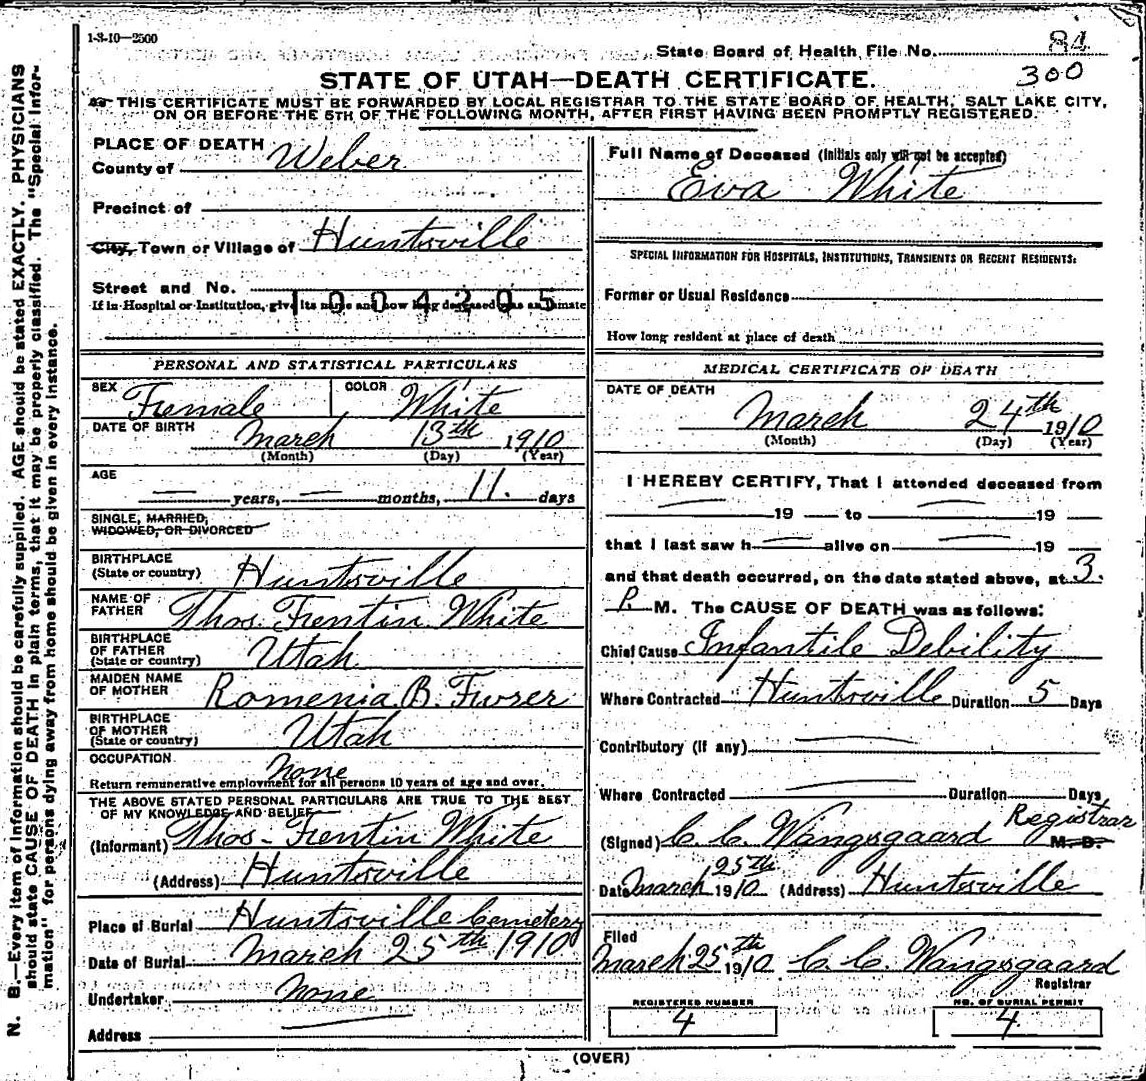 1-3-10—2500
State Board of Health File No. 84
300
STATE OF UTAH—DEATH CERTIFICATE.
THIS CERTIFICATE MUST BE FORWARDED BY LOCAL REGISTRAR TO THE STATE BOARD OF HEALTH, SALT LAKE CITY,
ON OR BEFORE THE 5TH OF THE FOLLOWING MONTH, AFTER FIRST HAVING BEEN PROMPTLY REGISTERED.
PLACE OF DEATH
County of Weber
Precinct of
City, Town or Village of Huntsville
Street and No.
1004205
If in Hospital or Institution, give its name and how long deceased was an inmate
PERSONAL AND STATISTICAL PARTICULARS
SEX Female COLOR White
DATE OF BIRTH March 13th 1910
(Month) (Day) (Year)
AGE
— years, — months, 11. days
SINGLE, MARRIED,
WIDOWED, OR DIVORCED
BIRTHPLACE
(State or country) Huntsville
NAME OF
FATHER Thos. Frentin White
BIRTHPLACE
OF FATHER
(State or country) Utah
MAIDEN NAME
OF MOTHER Romenia B.
BIRTHPLACE
OF MOTHER
(State or country) Utah
OCCUPATION None
Return remunerative employment for all persons 10 years of age and over.
THE ABOVE STATED PERSONAL PARTICULARS ARE TRUE TO THE BEST
OF MY KNOWLEDGE AND BELIEF
(Informant) Thos- Frentin White
(Address) Huntsville
Place of Burial Huntsville Cemetery
Date of Burial March 25th 1910
Undertaker None
Address
Full Name of Deceased (Initials only will not be accepted)
Eva White
SPECIAL INFORMATION FOR HOSPITALS, INSTITUTIONS, TRANSIENTS OR RECENT RESIDENTS:
Former or Usual Residence
How long resident at place of death
MEDICAL CERTIFICATE OF DEATH
DATE OF DEATH
March 24th 1910
(Month) (Day) (Year)
I HEREBY CERTIFY, That I attended deceased from
— 19 — to — 19 —
that I last saw h— alive on — 19 —
and that death occurred, on the date stated above, at 3.
P. M. The CAUSE OF DEATH was as follows:
Chief Cause Infantile Debility
Where Contracted Huntsville Duration 5 Days
Contributory (if any) —
Where Contracted — Duration Days
(Signed) C. C. Wangsgaard Registrar M. D.
Date March 25th 1910 (Address) Huntsville
Filed
March 25th 1910 C. C. Wangsgaard
Registrar
REGISTERED NUMBER
4
NO. OF BURIAL PERMIT
4
(OVER)
N. B.—Every item of information should be carefully supplied. AGE should be stated EXACTLY. PHYSICIANS
should state CAUSE OF DEATH in plain terms, that it may be properly classified. The "Special Infor-
mation" for persons dying away from home should be given in every instance.